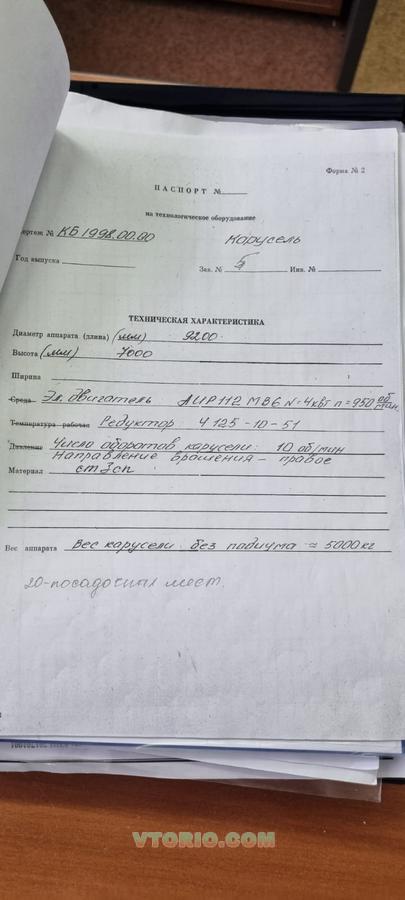 Форма № 2
ПАСПОРТ №
на технологическое оборудование
ертеж № КБ 1998.00.00 Карусель
Год выпуска Зав. № 5 Инв. №
ТЕХНИЧЕСКАЯ ХАРАКТЕРИСТИКА
Диаметр аппарата (длина) (мм) 9200
Высота (мм) 7000
Ширина
Среда Эл. двигатель АИР112 МВ6 N=4кВт n=950 об/мин.
Температура рабочая Редуктор Ч 125-10-51
Давление Число оборотов карусели: 10 об/мин
Направление вращения - правое
Материал ст3сп
Вес аппарата Вес карусели без подиума ≈ 5000кг
20-посадочных мест.
VTORIO.COM